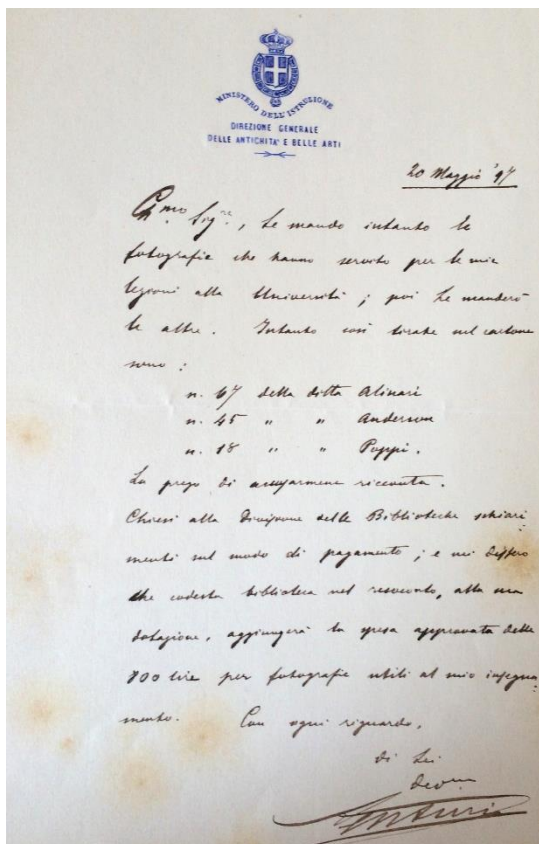 MINISTERO DELL'ISTRUZIONE
DIREZIONE GENERALE
DELLE ANTICHITA' E BELLE ARTI
20 Maggio '97
Ch.mo Sig.re, Le mando intanto le
fotografie che hanno servito per le mie
lezioni alla Università; poi Le manderò
le altre. Intanto così tirate nel cartone
sono:
n. 67 della ditta Alinari
n. 45 " " Anderson
n. 18 " " Poppi.
La prego di accusarmene ricevuta.
Chiesi alla Divisione delle Biblioteche schiari
menti sul modo di pagamento; e mi dissero
che codesta biblioteca nel resoconto, alla sua
dotazione, aggiungerà la spesa approvata delle
800 lire per fotografie utili al mio insegna
mento. Con ogni riguardo,
di Lei
dev.mo
AVenturi